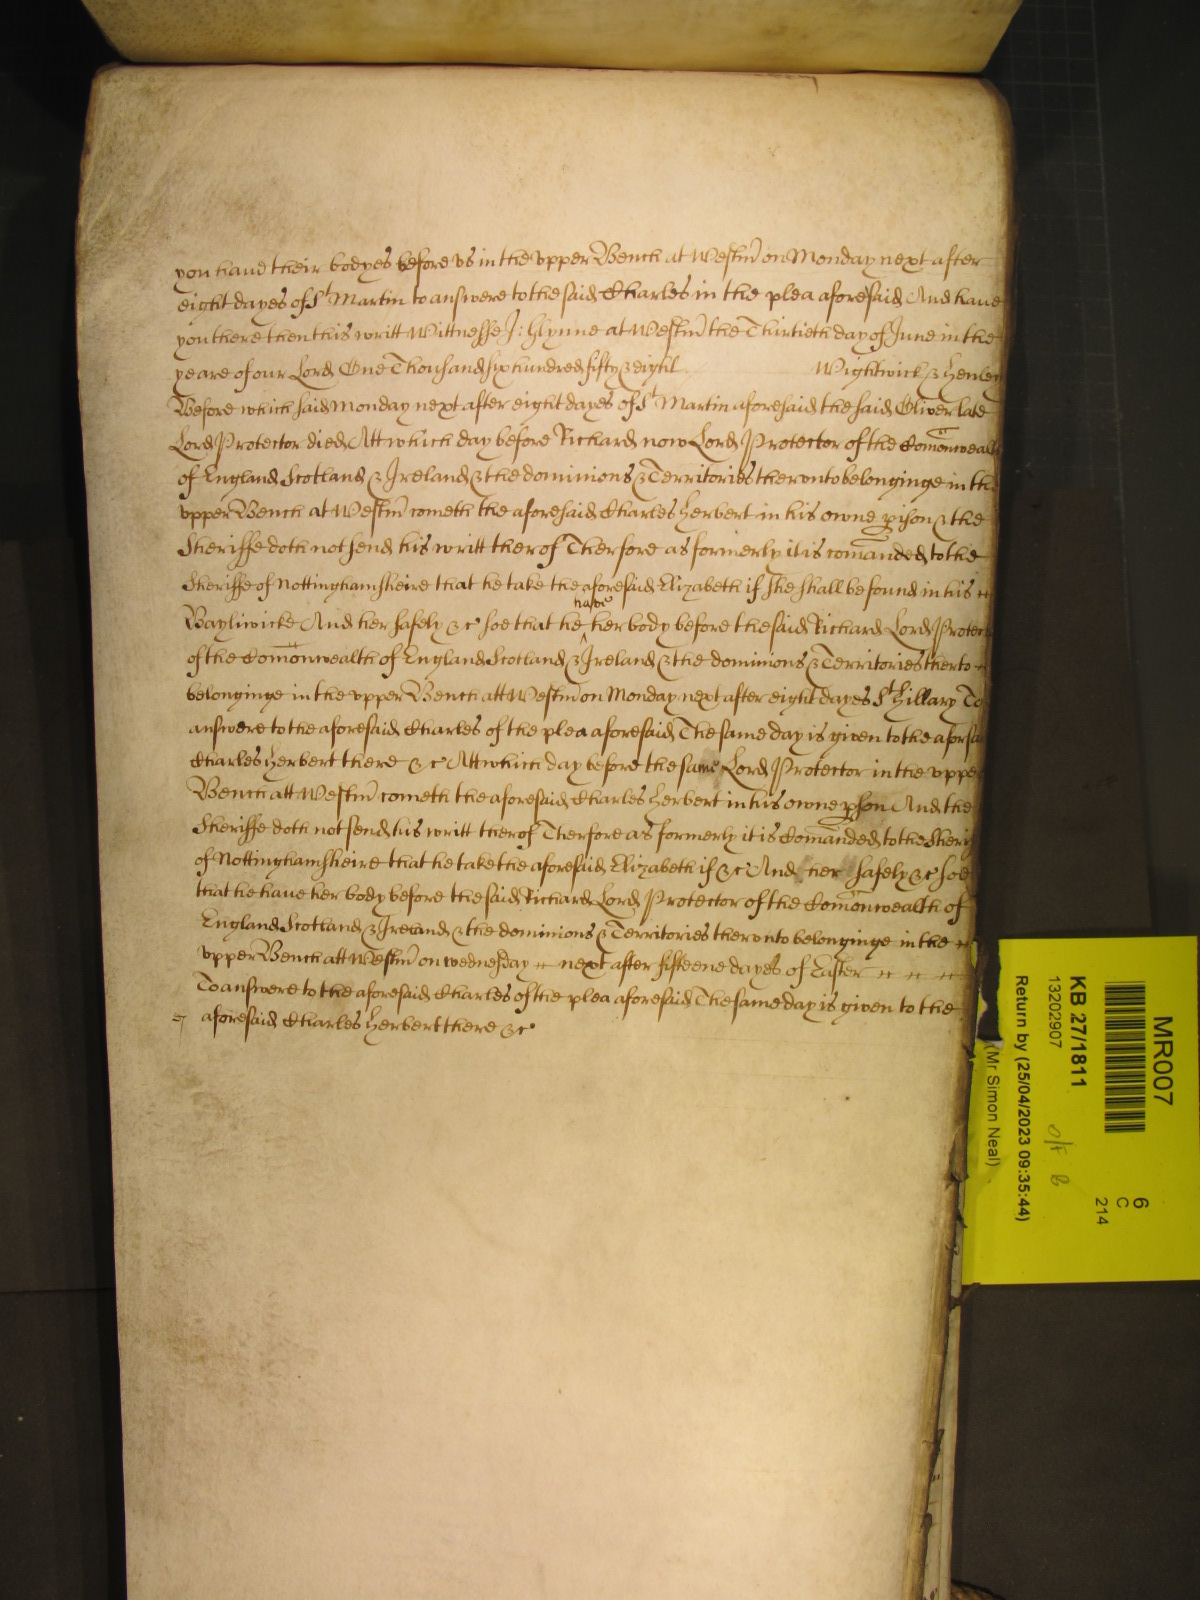 you haue their bodyes before vs in the vpper Bench at Westm̃ on Monday next after
eight dayes of St Martin to answere to the said Charles in the plea aforesaid And haue
you there then this writt Wittnesse J: Glynne at Westm̃ the Thirtieth day of June in the
yeare of our Lord One Thousand six hundred fifty & eight Wightwick & Henley
Before which said Monday next after eight dayes of St Martin aforesaid the said Oliver late
Lord Protector died Att which day before Richard now Lord Protector of the Com̃onwealth
of England Scotland & Ireland & the dominions & Territories thervnto belonginge in the
vpper Bench at Westm̃ cometh the aforesaid Charles Herbert in his owne ꝑson & the
Sheriffe doth not send his writt therof Therfore as formerly it is com̃anded to the
Sheriffe of Nottinghamsheire that he take the aforesaid Elizabeth if she shall be found in his
Bayliwicke And her safely &c soe that he ^have her body before the said Richard Lord Protector
of the Com̃onwealth of England Scotland & Ireland & the dominions & Territories therto
belonginge in the vpper Bench att Westm̃ on Monday next after eight dayes St Hillary To
answere to the aforesaid Charles of the plea aforesaid The same day is given to the aforsaid
Charles Herbert there &c Att which day before the same Lord Protector in the vpper
Bench att Westm̃ cometh the aforesaid Charles Herbert in his owne ꝑson And the
Sheriffe doth not send his writt therof Therfore as formerly it is Com̃anded to the Sheriffe
of Nottinghamsheire that he take the aforesaid Elizabeth if &c And her safely &c soe
that he haue her body before the said Richard Lord Protector of the Com̃onwealth of
England Scotland & Ireland & the dominions & Territories thervnto belonginge in the
vpper Bench att Westm̃ on wednesday next after fifteene dayes of Easter
To answere to the aforesaid Charles of the plea aforesaid The same day is given to the
aforesaid Charles Herbert there &c
MR007
6
C
214
KB 27/1811
13202907
Return by (25/04/2023 09:35:44)
(Mr Simon Neal)